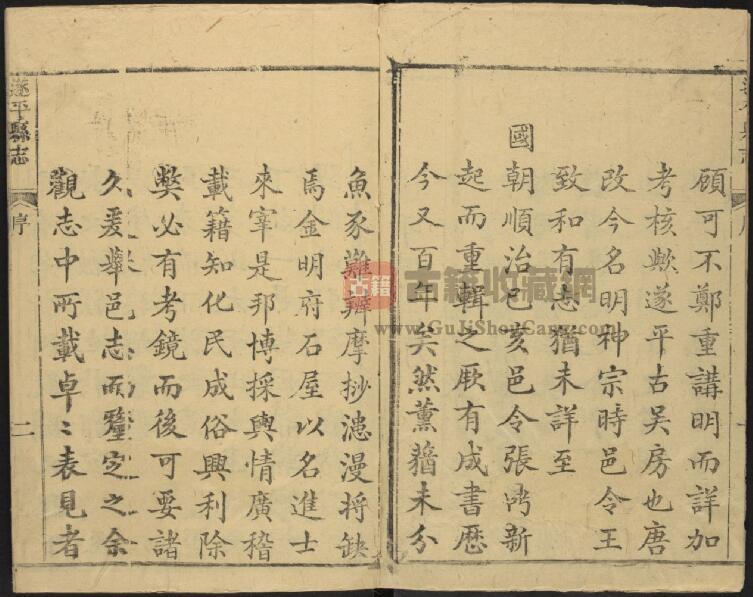 顧可不鄭重講明而詳加
考核歟遂平古吳房也唐
改今名明神宗時邑令王
致和有志猶未詳至
國朝順治己亥邑令張
新
起而重輯之厥有成書歷
今又百年矣然薰蕕未分
魚豕難辨摩抄漶漫將缺
焉金明府石屋以名進士
來宰是邦博採輿情廣稽
載籍知化民成俗興利除
獘必有考鏡而後可妥諸
久爰舉邑志而釐定之余
觀志中所載卓〻表見者
遂平縣志
序
二
古籍
古籍收藏網
www.GuJiShouCang.com